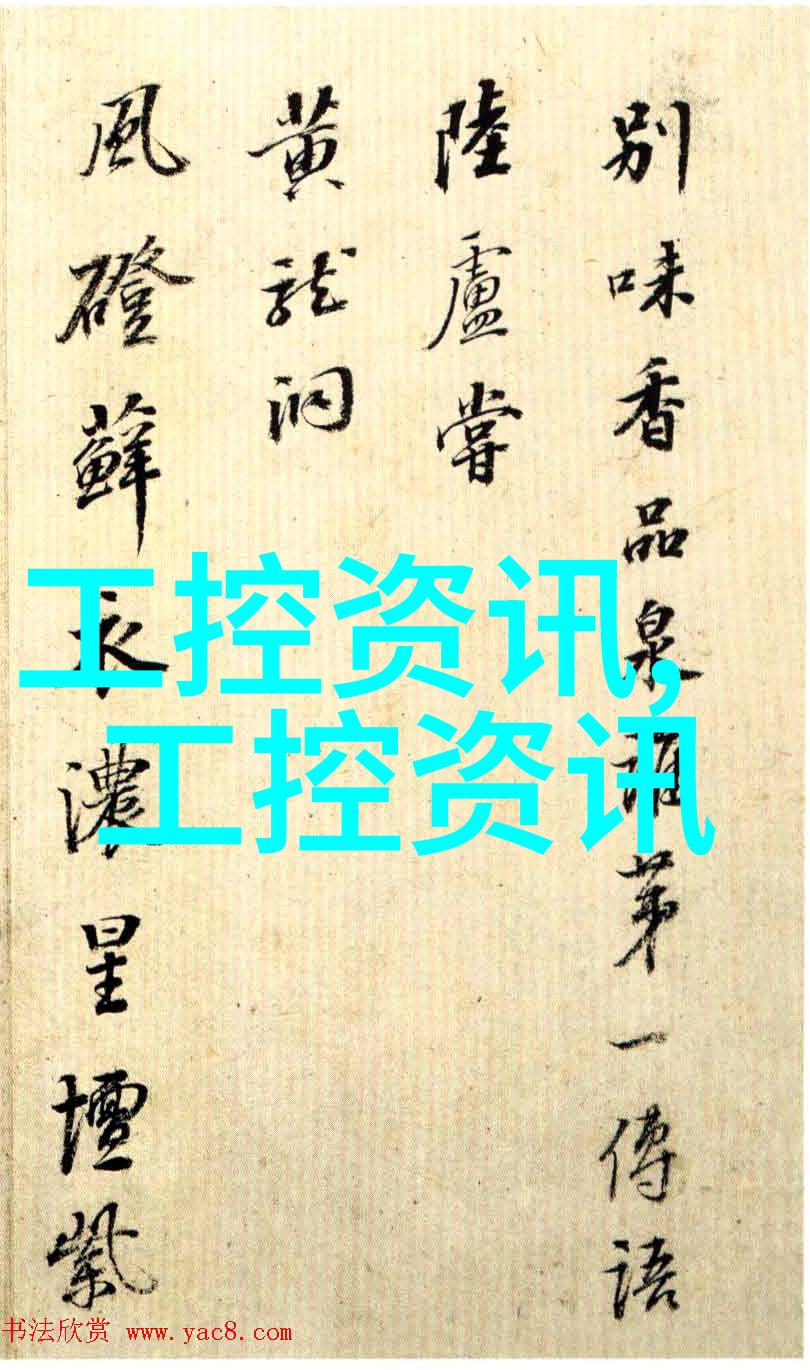 别味香品泉谁第一傳語
陸盧嘗
黄龍洞
風磴蘚衣濃星壇紫
工控资讯,
工控资讯
书法欣赏 www.yac8.com